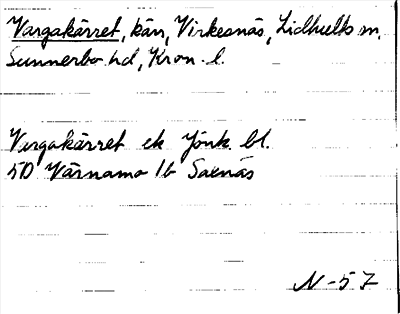 Vargakärret, kärr, Virkesnäs, Lidhults sn.
Sunnerbo hd, Kron. l.
Vargakärret ek Jönk. bl.
5D Värnamo 1b Saxnäs
N-57